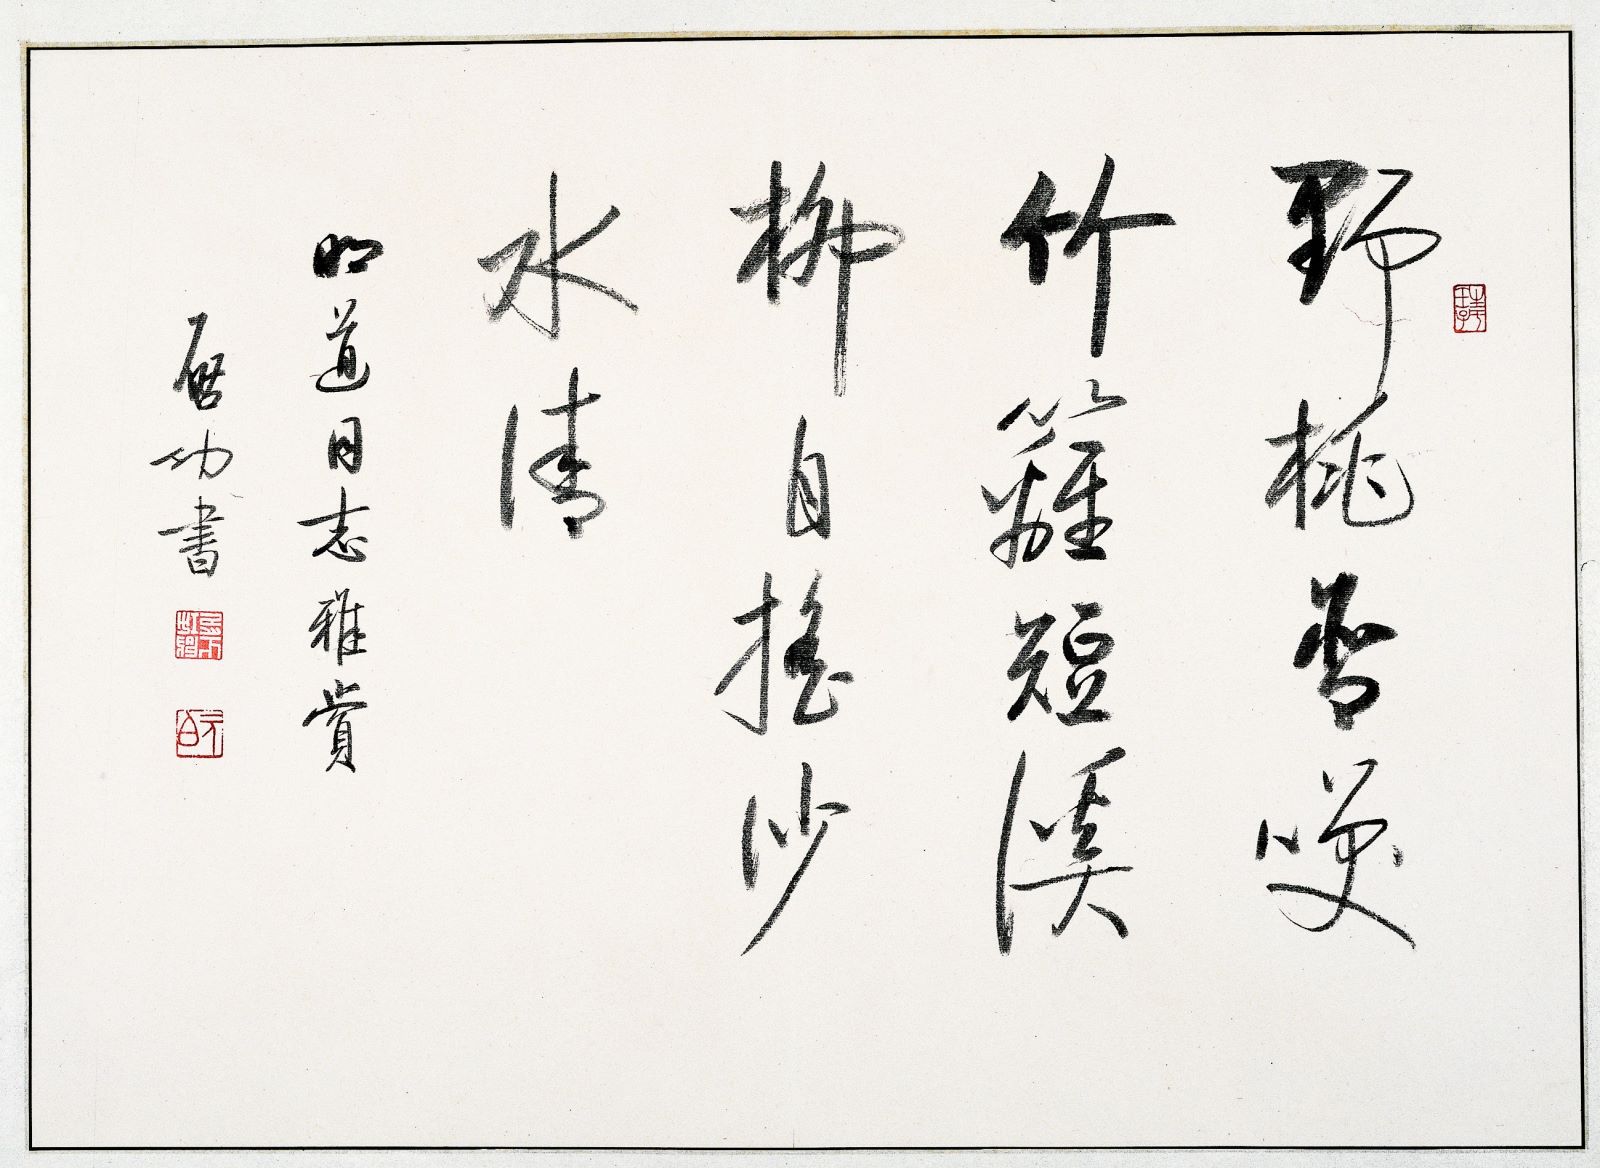 野桃含笑
竹籬短溪
柳自搖沙
水清
明道同志雅賞
啓功書
元白